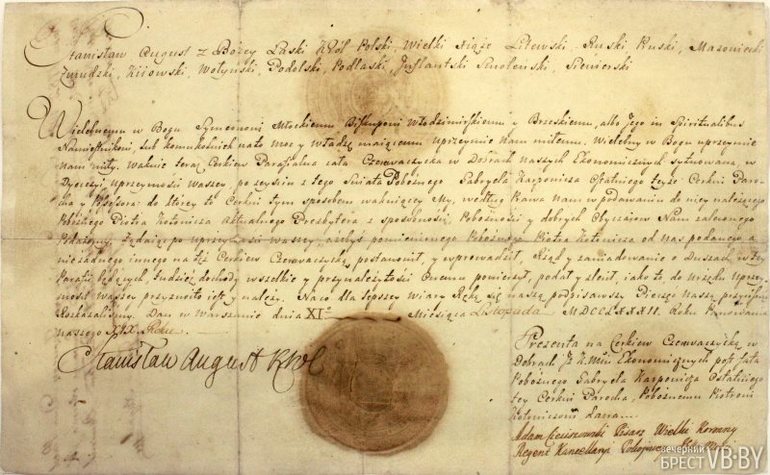 Stanisław August z Bożey Łaski Król Polski, Wielki Xiąże Litewski, Ruski, Pruski, Mazowiecki
Żmudzki, Kijowski, Wołyński, Podolski, Podlaski, Inflantski Smoleński, Siewierski
Wielebnemu w Bogu Symeonowi Młockiemu Biskupowi Włodzimirskiemu y Brzeskiemu, albo Jego in Spiritualibus
Namiestnikowi, lub komukolwiek na to moc y władzę maiącemu uprzeymie Nam miłemu. Wielebny w Bogu uprzeymie
Nam miły. Wakuie teraz Cerkiew Parafialna
w Dobrach Naszych Ekonomicznych sytuowana, w
Dyecezyi uprzeymości Waszey po zeysciu z tego Swiata Pobożnego Gabryela Karpowicza Ostatniego teyże Cerkwi Paro-
cha y Possesora do ktorey to Cerkwi tym sposobem wakuiącey My, według Prawa Nam w podawaniu do niey należącego
Pobożnego Piotra Kotowicza Aktualnego Presbytera z sposobności, Pobożności y dobrych Obyczaiow Nam zaleconego
Podaiemy, żądaiąc po uprzeymości Waszey, ażebyś pomienionego Pobożnego Piotra Kotowicza od Nas podanego a
nieżadnego innego na też Cerkiew postanowił y wprowadził, Rząd y zawiadowanie o Duszach w tey
Parafii będących, tudzież dochody wszelkie y przynależytości Onemu powierzył, podał y zlecił, iako to, do Urzędu Uprzey-
mości Waszey przyzwoito iest y należy. Na co dla lepszey Wiary Ręką się Naszą podpisawszy Pieczęć Naszą przycisnąć
Rozkazaliśmy. Dan w Warszawie dnia XI Miesiąca Listopada MDCCLXXXII. Roku Panowania
Naszego XIX Roku
Stanisław August Król
Prezenta na Cerkiew
w
Dobrach J. K. Mci Ekonomicznych post fata
Pobożnego Gabryela Karpowicza Ostatniego
tey Cerkwi Parocha, Pobożnemu Piotrowi
Kotowiczowi dana
Adam Cieciszowski Pisarz Wielki Koronny
Regent Kancellaryi
вечерний
БРЕСТ VB.BY